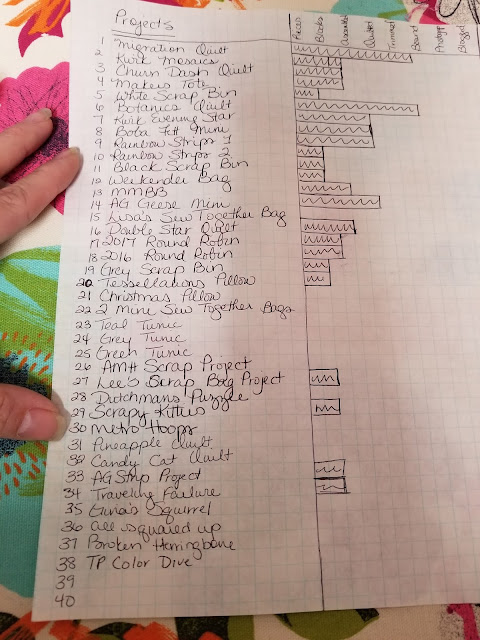 Projects
Pieces Blocks Assembled Quilted Trimmed Bound Photog Blogged
1 Migration Quilt
2 Kwik Mosaics
3 Churn Dash Quilt
4 Makers Tote
5 White Scrap Bin
6 Botanics Quilt
7 Kwik Evening Star
8 Boba Fett Mini
9 Rainbow Strips 1
10 Rainbow Strips 2
11 Black Scrap Bin
12 Weekender Bag
13 MMBB
14 AG Geese Mini
15 Lisa's Sew Together Bag
16 Double Star Quilt
17 2017 Round Robin
18 2016 Round Robin
19 Grey Scrap Bin
20 Tessellations Pillow
21 Christmas Pillow
22 2 Mini Sew Together Bags
23 Teal Tunic
24 Grey Tunic
25 Green Tunic
26 AMH Scrap Project
27 Lee's Scrap Bag Project
28 Dutchmans Puzzle
29 Scrapy Kitties
30 Metro Hoops
31 Pineapple Quilt
32 Candy Cat Quilt
33 AG Strip Project
34 Traveling Failure
35 Gina's Squirrel
36 all squared up
37 Broken Herringbone
38 TP Color Dive
39
40